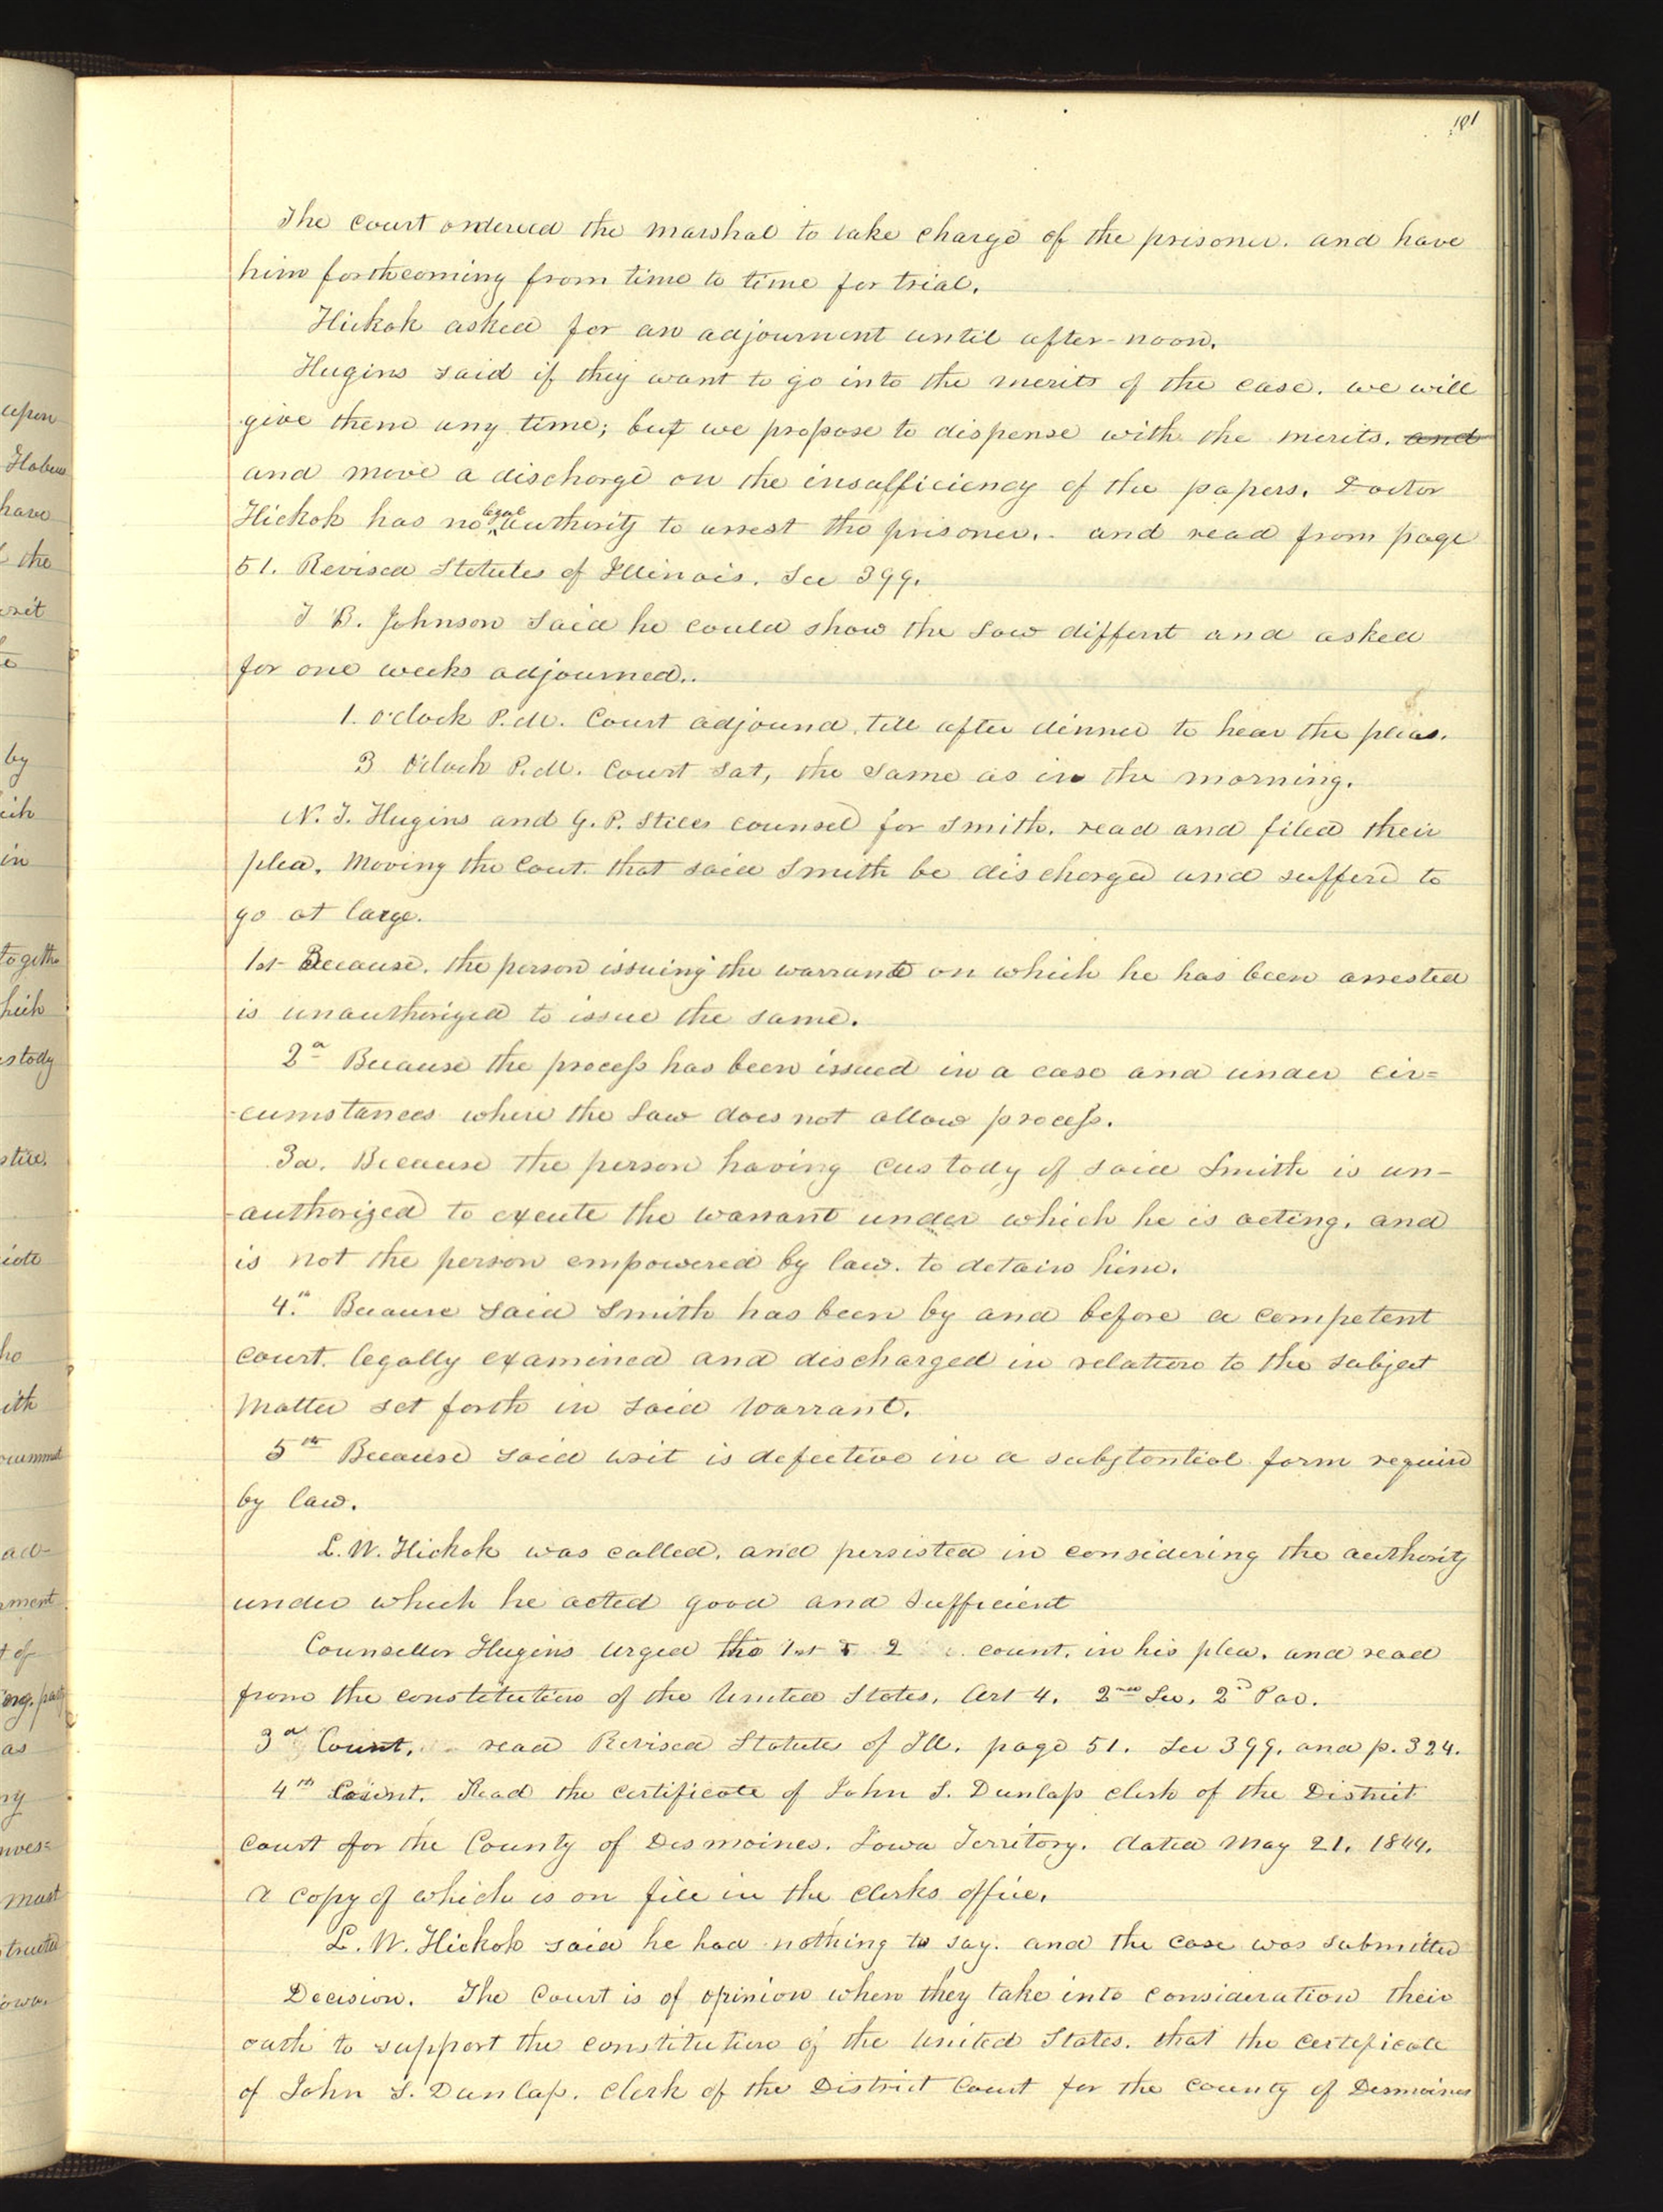 181
The court ordered the marshal to take charge of the prisoner. and have
him forthcoming from time to time for trial.
Hickok asked for an adjournmnt until after-noon.
Hugins said if they want to go into the merits of the case. we will
give them any time; but we propose to dispense with the merits. and
and move a discharge on the insufficiency of the papers. Doctor
Hickok has no legal authority to arrest the prisoner.. and read from page
51. Revised Statutes of Illinois. Sec 399.
T B. Johnson said he could show the Law differnt and asked
for one weeks adjourned..
1. o'clock P.M. Court adjound, till after dinner to hear the pleas.
3 O'clock P.M. Court sat, the same as in the morning.
N. J. Hugins and G. P. Stiles counsel for Smith. read and filed their
plea. Moving the Court. that said Smith be discharged and sufferd to
go at large.
1st Because. the person issuing the warrant on which he has been arrested
is unauthorized to issue the same.
2d Because the process has been issued in a case and under cir=
-cumstances where the Law does not allow process.
3d. Because the person having custody of said Smith is un-
-authorized to excute the warrant under which he is acting. and
is not the person empowered by law. to detain him.
4.th Because said Smith has been by and before a competent
court. legally examined and discharged in relation to the subject
matter set forth in said warrant.
5th Because said writ is defective in a substantial form requird
by law.
L. W. Hickok was called. and persisted in considering the authority
under which he acted good and sufficient
Counsellor Hugins urged the 1st & 2 count. in his plea. and read
from the constitution of the United States. Art 4. 2nd Sec. 2d Par.
3d Count. read Revised Statutes of Ill. page 51. Sec 399. and p. 324.
4th Count. Read the certificate of John S. Dunlap clerk of the District
court for the County of Desmoines. Iowa Territory. dated May 21. 1844.
a copy of which is on file in the clerks office.
L. W. Hickok said he had nothing to say. and the case was submitted
Decision. The Court is of opinion when they take into consideration their
oath to support the constitution of the United States. that the certificate
of John S. Dunlap. clerk of the District Court for the county of Desmoines